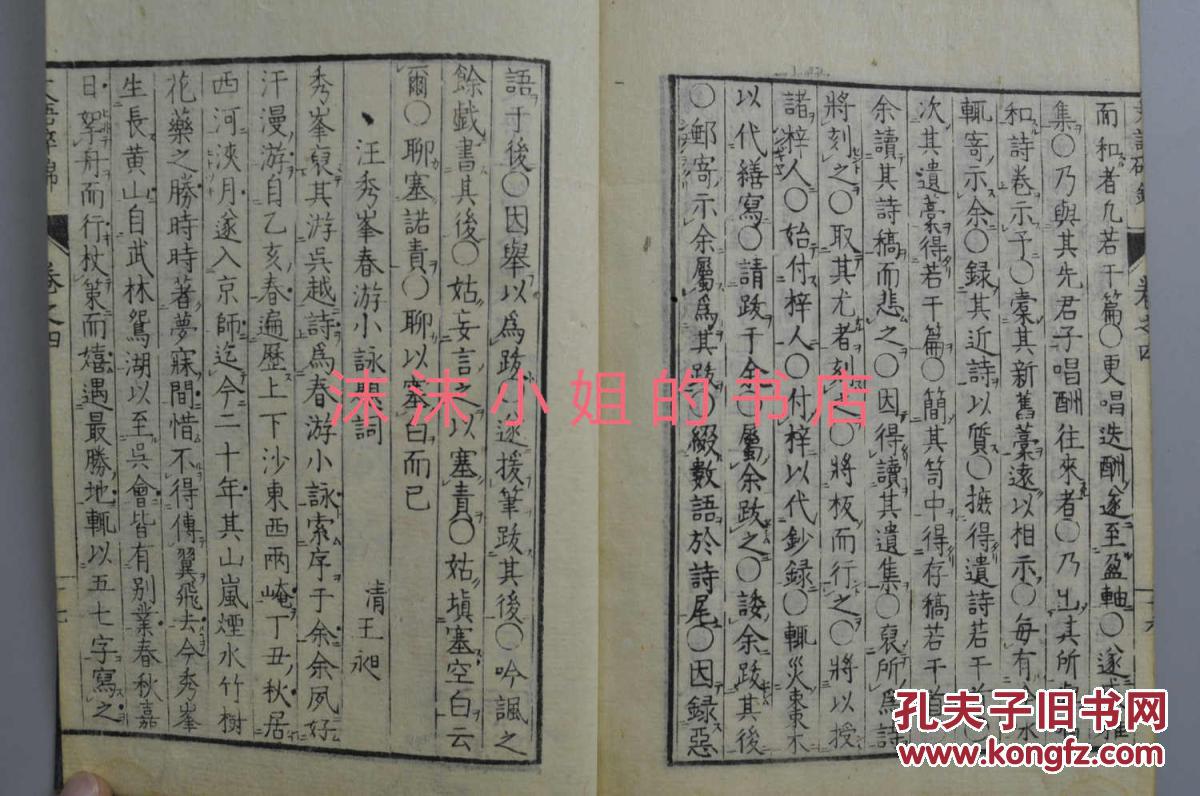 而和者凡若干篇○更唱迭酬遂至盈軸○遂
集○乃與其先君子唱酬往來者○乃出其所
和詩卷示予○橐其新舊藁遠以相示○每有
輒寄示余○録其近詩以質○摭得遺詩若干
次其遺藁得若干篇○簡其笥中得存稿若干首
余讀其詩稿而悲之○因得讀其遺集○裒所爲詩
將刻之○取其尤者刻○將板而行之○將以授
諸梓人○始付梓人○付梓以代鈔録○輒災東棗不
以代繕寫○請跋于余○屬余跋之○諉余跋其後
○郵寄示余屬爲其跋○綴數語於詩尾○因録惡
語于後○因舉以爲跋○遂援筆跋其後○吟諷之
餘戯書其後○姑妄言之以塞責○姑塡塞空白云
爾○聊塞諾責○聊以塞白而已
汪秀峯春游小詠題詞
清王昶
秀峯裒其游吳越詩爲春游小詠索序于余余夙好
汗漫游自乙亥春遍歷上下沙東西兩崦丁丑秋居
西河浹月遂入京師迄今二十年其山嵐煙水竹樹
花藥之勝時時著夢寐間惜不得傅翼飛去今秀峯
生長黄山自武林鴛湖以至吳會皆有别業春秋嘉
日拏舟而行杖策而嬉遇最勝地輒以五七字寫之
卷之四
沫沫小姐的书店
孔夫子旧书网
www.kongfz.com